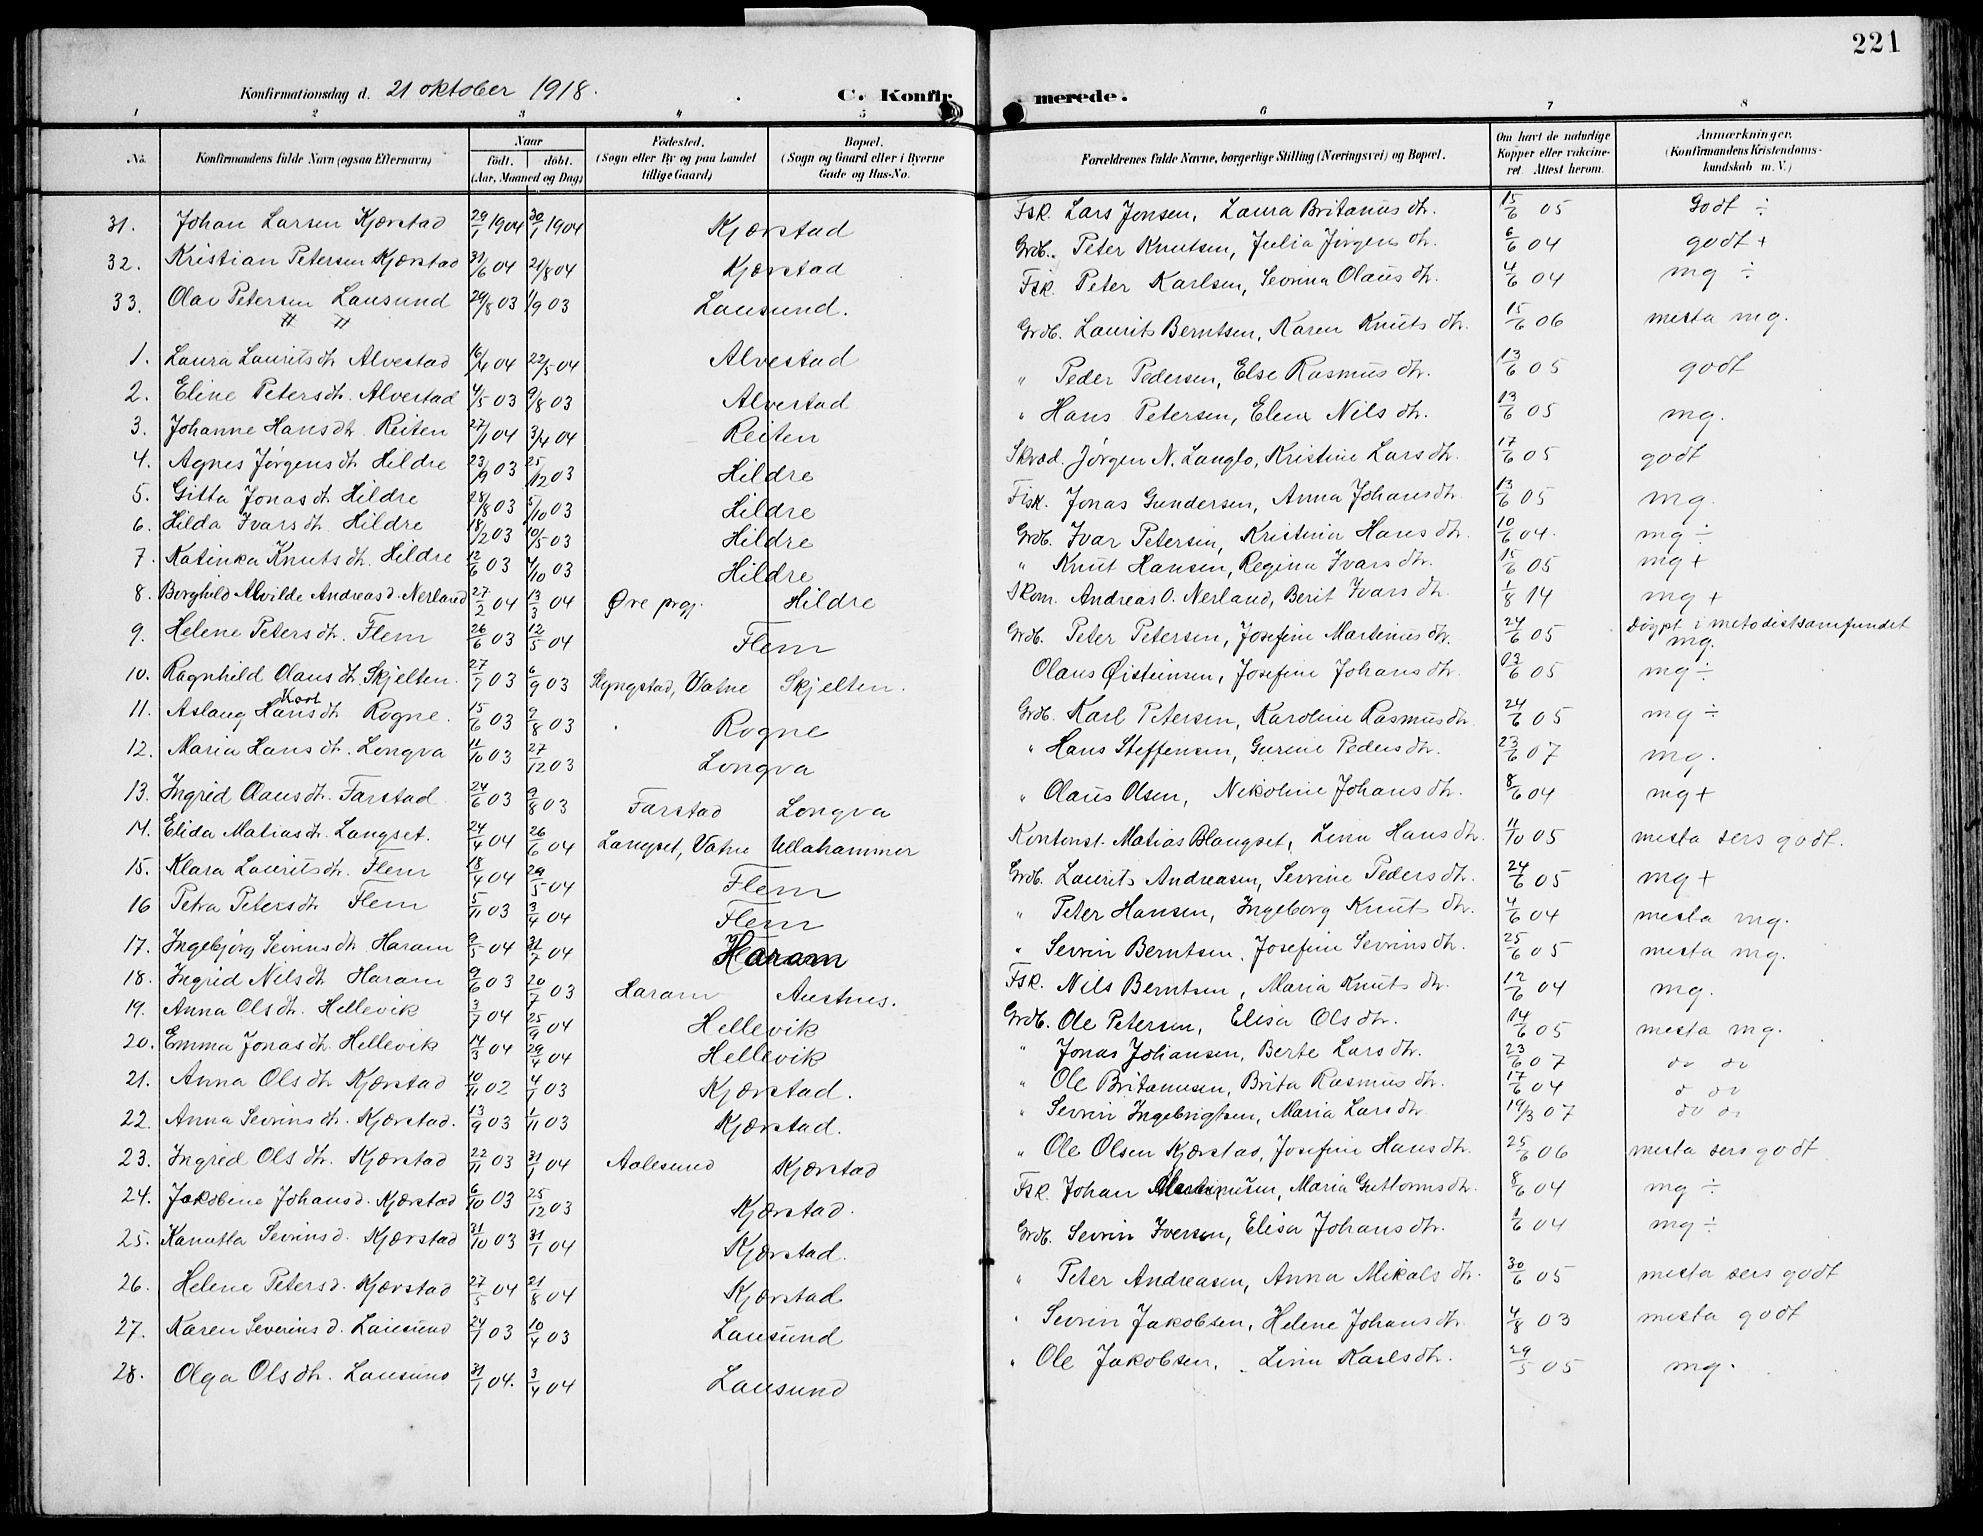 221
Konfirmationsdag d. 21 oktober 1918.
C. Konfir merede.
1 2 3 4 5 6 7 8
No.
Konfirmandens fulde Navn (ogsaa Efternavn)
Naar
födt. döbt.
(Aar, Maaned og Dag)
Födested.
(Sogn eller By og paa Landet
tillige Gaard)
Bopæl.
(Sogn og Gaard eller i Byerne
Gade og Hus-No.
Forældrenes fulde Navne, borgerlige Stilling (Næringsvei) og Bopæl.
Om havt de naturlige
Kopper eller vakcine-
ret. Attest herom.
Anmærkninger.
(Konfirmandens Kristendoms-
kundskab m. V.)
31. Johan Larsen Kjærstad 29/1 1904 30/1 1904 Kjærstad Fsk. Lars Jonsen, Laura Britanus dtr. 15/6 05 Godt ÷
32. Kristian Petersen Kjærstad 31/6 04 21/8 04 Kjærstad Grdb. Peter Knutsen, Julia Jørgens dtr. 6/6 04 godt +
33. Olav Petersen Lausund 29/8 03 1/9 03 Lausund. Fsk. Peter Karlsen, Sevrina Olaus dtr. 4/6 04 mg ÷
1. Laura Laurits dtr Alvestad 16/4 04 22/5 04 Alvestad Grdb. Laurits Berntsen, Karen Knuts dtr. 15/6 06 mesta mg.
2. Eline Peters dtr. Alvestad 4/5 03 9/8 03 Alvestad " Peder Pedersen, Else Rasmus dtr. 13/6 05 godt
3. Johanne Hans dtr. Reiten 27/1 04 3/4 04 Reiten " Hans Petersen, Elen Nils dtr. 13/6 05 mg.
4. Agnes Jørgens dtr Hildre 23/9 03 25/12 03 Hildre Skræd. Jørgen N. Langlo, Kristine Lars dtr. 17/6 05 godt
5. Gitta Jonas dtr Hildre 28/8 03 5/10 03 Hildre Fisk. Jonas Gundersen, Anna Johans dtr. 13/6 05 mg.
6. Hilda Ivars dtr Hildre 18/2 03 10/5 03 Hildre Grdb. Ivar Petersen, Kristina Hans dtr. 10/6 04. mg ÷
7. Katinka Knuts dtr. Hildre 12/6 03 4/10 03 Hildre " Knut Hansen, Regina Ivars dtr. 15/6 05 mg +
8. Borghild Alvilde Andreas d. Nerland 27/2 04 13/3 04 Øre prgj. Hildre Skom. Andreas O. Nerland, Berit Ivars dtr. 1/8 14 mg +
9. Helene Peters dtr. Flem 26/6 03 12/5 04 Flem Grdb. Peter Petersen, Josefine Martinus dtr. 24/6 05 Døypt i metodistsamfundet mg.
10. Ragnhild Olaus dtr. Skjelten. 27/7 03 6/9 03 Slyngstad, Vatne Skjelten. Olaus Øisteinsen, Josefine Johans dtr. 03/6 05 mg ÷
11. Aslaug Hans Karl dtr Rogne. 15/6 03 9/8 03 Rogne Grdb. Karl Petersen, Karoline Rasmus dtr. 24/6 05 mg ÷
12. Maria Hans dtr. Longva 11/10 03 27/12 03 Longva " Hans Steffensen, Gurine Peders dtr. 23/6 07 mg.
13. Ingrid Olaus dtr. Farstad 24/6 03 9/8 03 Farstad Longva " Olaus Olsen, Nikoline Johans dtr. 8/6 04 mg +
14. Elida Matias dtr. Langset. 24/4 04 26/6 04 Langset, Vatne Ullahammer Kontorist. Matias B Langset, Lina Hans dtr. 11/10 05 mesta sers godt.
15. Klara Laurits dtr. Flem 18/4 04 29/5 04 Flem Grdb. Laurits Andreasen, Sevrine Peders dtr. 24/6 05 mg +
16 Petra Peters dtr Flem 5/11 03 3/4 04 Flem " Peter Hansen, Ingeborg Knuts dtr. 4/6 04 mesta mg.
17. Ingebjørg Sevrins dtr. Haram 9/5 04 31/7 04 Haram " Sevrin Berntsen, Josefine Sevrins dtr. 25/6 05 mesta mg.
18. Ingrid Nils dtr Haram 9/6 03 20/7 03 Haram Austnes. Fsk. Nils Berntsen, Maria Knuts dtr. 12/6 04 mg.
19. Anna Ols dtr. Hellevik 3/7 04 25/9 04 Hellevik Grdb. Ole Petersen, Elisa Ols dtr. 14/6 05 mesta mg.
20. Emma Jonas dtr. Hellevik 14/3 04 29/4 04 Hellevik " Jonas Johansen, Berte Lars dtr. 23/6 07 do do
21. Anna Ols dtr Kjærstad 10/11 02 4/1 03 Kjærstad. " Ole Britanusen, Brita Rasmus dtr. 17/6 04 do do
22. Anna Sevrins dtr. Kjærstad. 13/9 03 1/11 03 Kjærstad. " Sevrin Ingebrigtsen, Maria Lars dtr 19/3 07 do do
23. Ingrid Ols dtr. Kjærstad 22/11 03 31/1 04 Aalesund Kjærstad " Ole Olsen Kjærstad, Josefine Hans dtr. 25/6 06 mesta sers godt
24. Jakobine Johans d. Kjærstad 6/10 03 25/12 03 Kjærstad. Fsk. Johan Martinusen, Maria Guttorms dtr. 8/6 04 mg ÷
25. Kanutta Sevrins d. Kjærstad 31/10 03 31/1 04 Kjærstad. Grdb. Sevrin Iversen, Elisa Johans dtr. 1/6 04 mg ÷
26. Helene Peters d. Kjærstad 27/5 04 21/8 04 Kjærstad " Peter Andreasen, Anna Mikals dtr. 30/6 05 mesta sers godt
27. Karen Severins d. Lausund 24/1 03 10/4 03 Lausund " Sevrin Jakobsen, Helene Johans dtr. 4/8 03 mesta godt
28. Olga Ols dtr. Lausund 31/1 04. 3/4 04 Lausund " Ole Jakobsen, Lina Karls dtr. 29/5 05 mg.